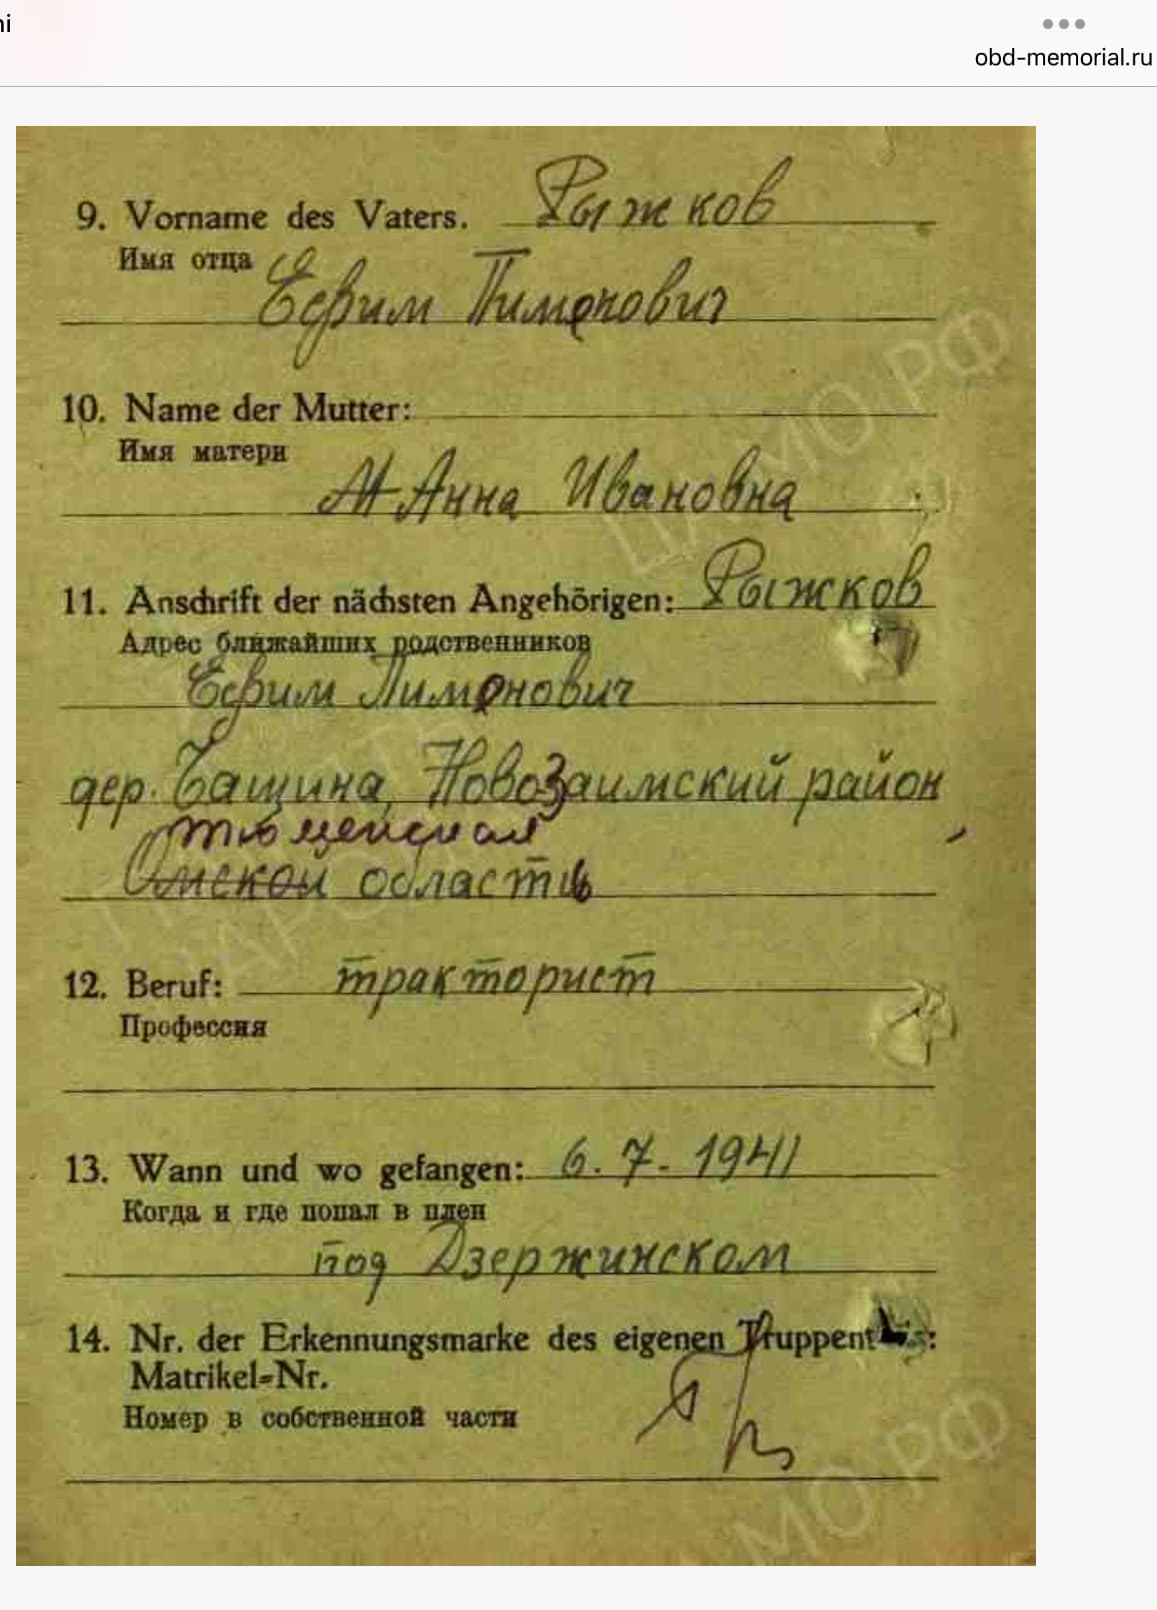 ni
obd-memorial.ru
9. Vorname des Vaters. Рыжков
Имя отца
Ефим Пимонович
10. Name der Mutter:
Имя матери
М Анна Ивановна
11. Anschrift der nächsten Angehörigen: Рыжков
Адрес ближайших родственников
Ефим Пимонович
дер. Бащина, Новозаимский район,
тюменская
Омской область
12. Beruf: тракторист
Профессия
13. Wann und wo gefangen: 6. 7. 1941
Когда и где попал в плен
под Дзержинском
14. Nr. der Erkennungsmarke des eigenen
Matrikel-Nr.
Номер в собственной части
ЦАМО РФ
МО РФ